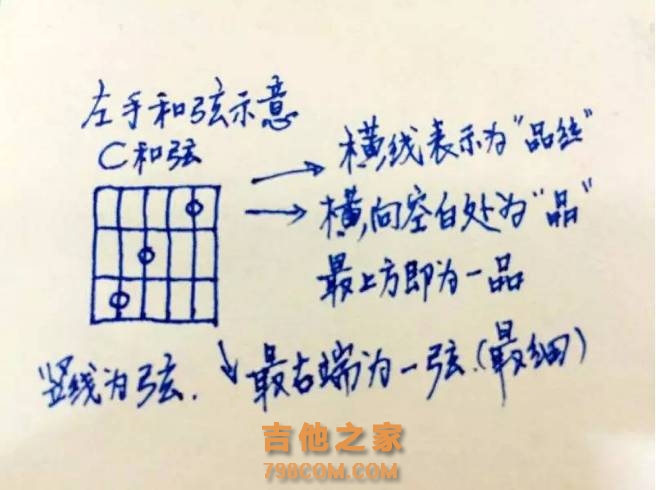 左手和弦示意
C和弦
横线表示为“品丝”
横向空白处为“品”
最上方即为一品
竖线为弦.
最右端为一弦.(最细)
吉他之家
798COM.COM